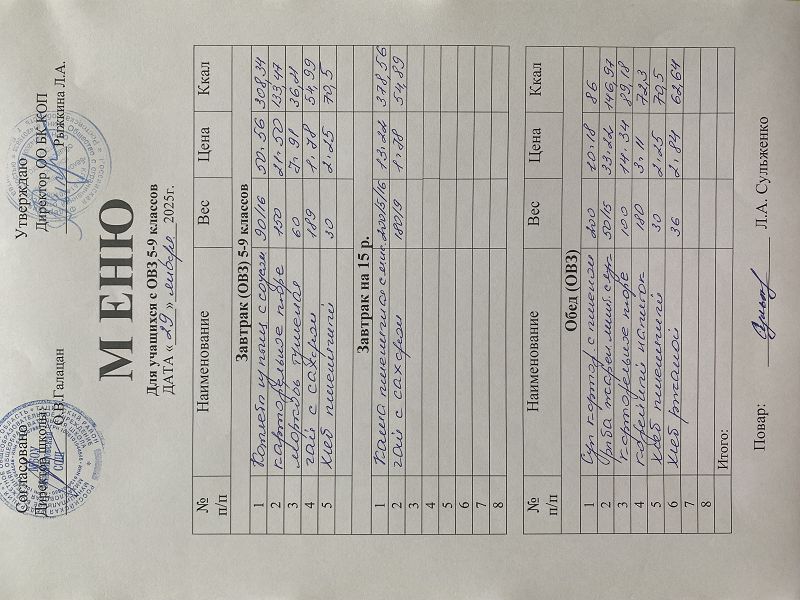 Согласовано
Директор школы:
О.В.Галацан
Утверждаю
Директор ОО БК КОП
Рыжкина Л.А.
МЕНЮ
Для учащихся с ОВЗ 5-9 классов
ДАТА « 29 » января 2025г.
№ п/п Наименование Вес Цена Ккал
Завтрак (ОВЗ) 5-9 классов
1 Котлета из птиц с соусом 90/16 50.56 308,34
2 картофельное пюре 150 21.50 133,47
3 морковь тушеная 60 7.91 36,21
4 чай с сахаром 189 1.78 54,99
5 хлеб пшеничный 30 2.25 70,5
Завтрак на 15 р.
1 Каша пшеничная с мас 200/5/16 13.22 378,56
2 чай с сахаром 180/9 1.78 54,89
3
4
5
6
7
8
№ п/п Наименование Вес Цена Ккал
Обед (ОВЗ)
1 Суп картоф с пшеном 200 10.18 86
2 Рыба жарен. 50/15 33.22 146,97
3 картофельное пюре 100 14.34 89,18
4 кофейный напиток 180 3.11 72,3
5 хлеб пшеничный 30 2.25 70,5
6 хлеб ржаной 36 2.84 62,64
7
8
Итого:
Повар: Л.А. Сульженко